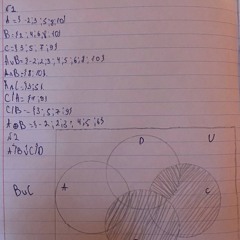 №1
A = {-2, 3, 5, 8, 10}
B = {2, 4, 6, 8, 10}
C = {3, 5, 7, 9}
A∪B = {-2, 2, 3, 4, 5, 6, 8, 10}
A∩B = {8, 10}
A∩C = {3, 5}
C\A = {7, 9}
C\B = {3, 5, 7, 9}
A⊕B = {-2, 2, 3, 4, 5, 6}
№2
D U
B∪C A C